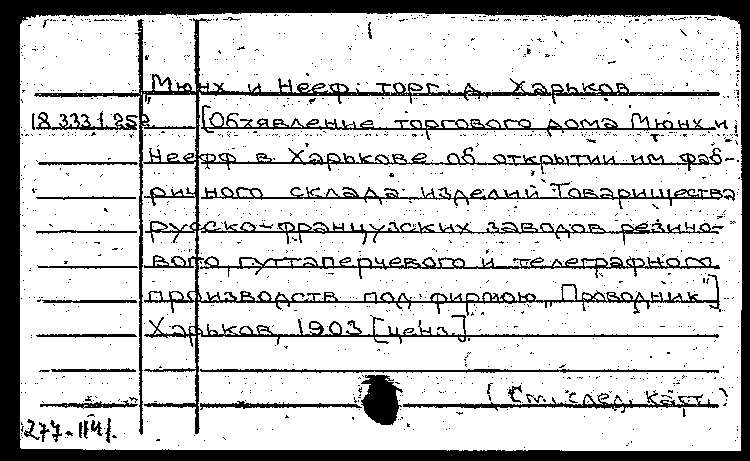 "Мюнх и Нееф", торг. д. Харьков
18.333.1.252. [Объявление торгового дома Мюнх и
Неефф в Харькове об открытии им фаб-
ричного склада изделий Товарищества
русско-французских заводов резино-
вого, гуттаперчевого и телеграфного
производств под фирмою „Проводник"]
Харьков, 1903 [ценз.]
(См. след. карт.)
277-1141.